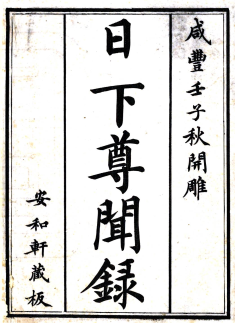 咸豐壬子秋開雕
日下尊聞録
安和軒藏板